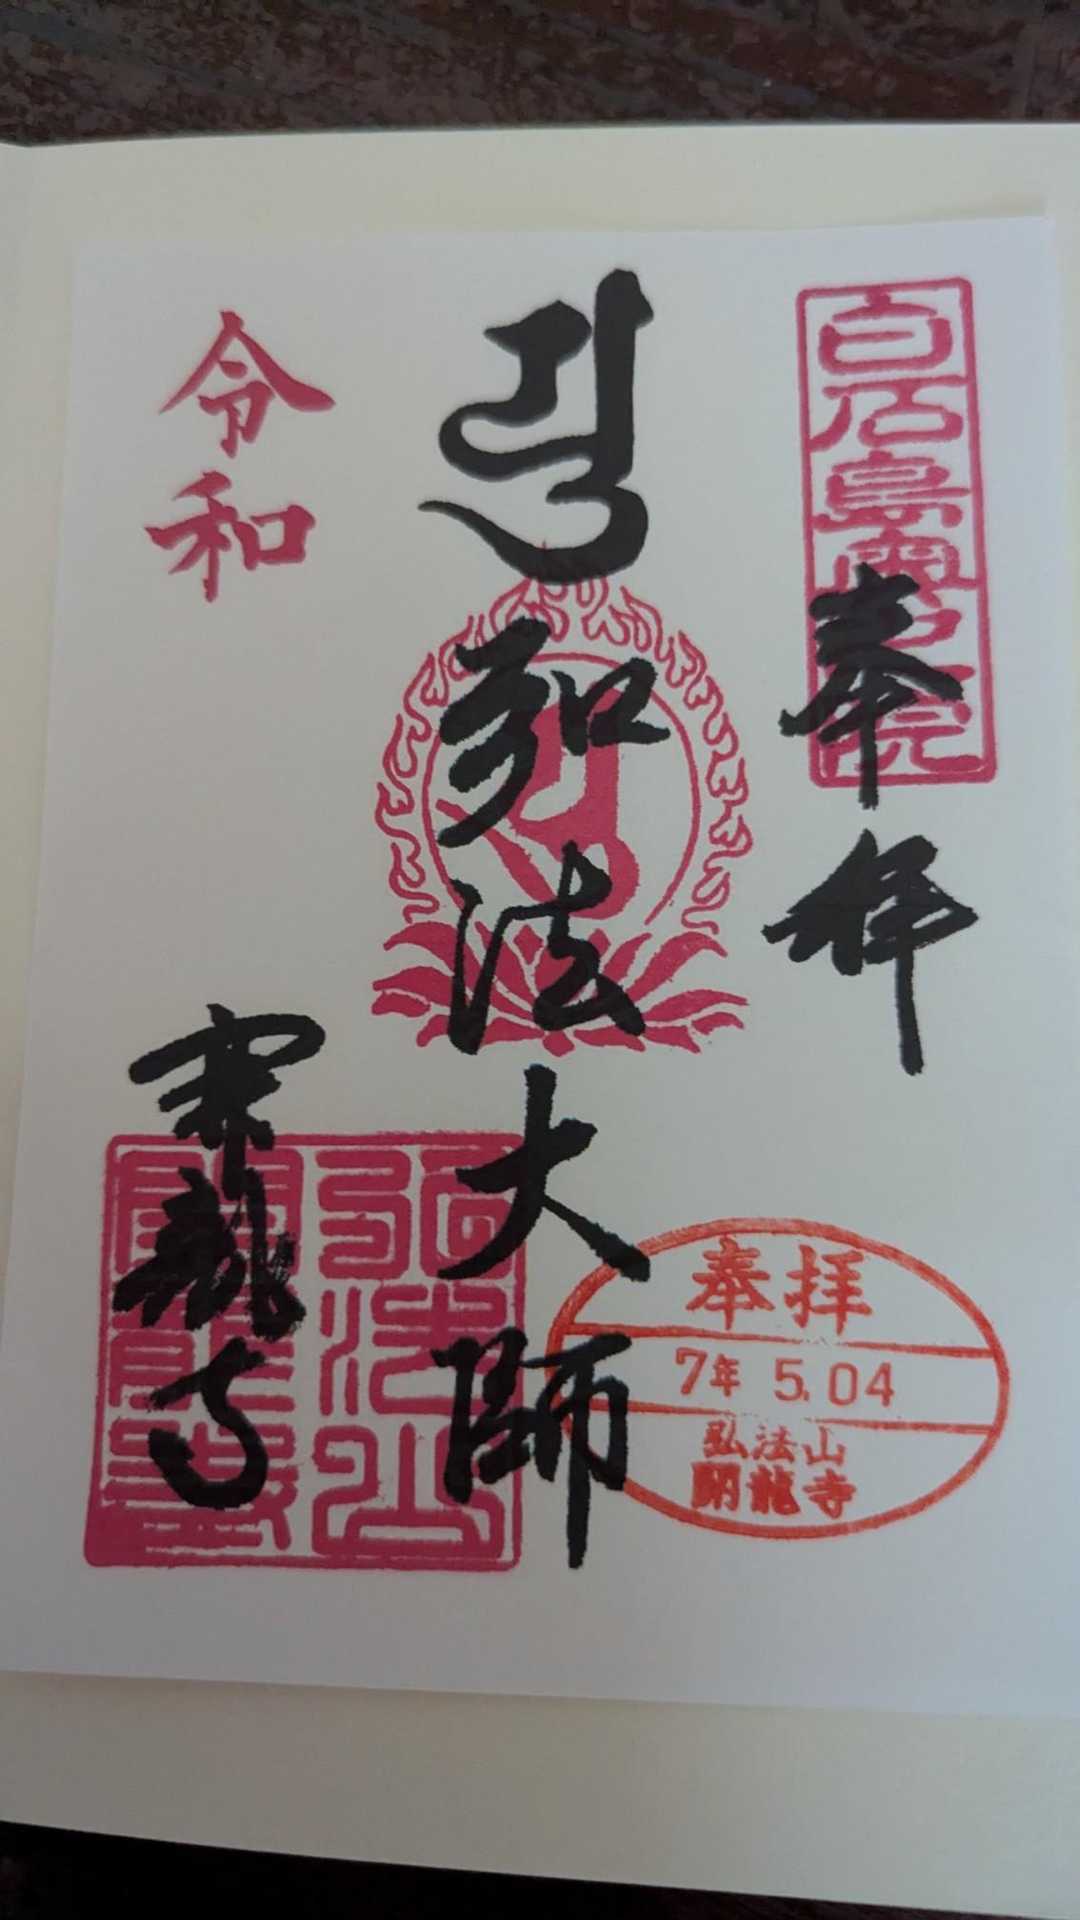 白石島奥之院
奉拝
弘法大師
令和
開龍寺
弘法山
開龍寺
奉拝
7年 5.04
弘法山
開龍寺